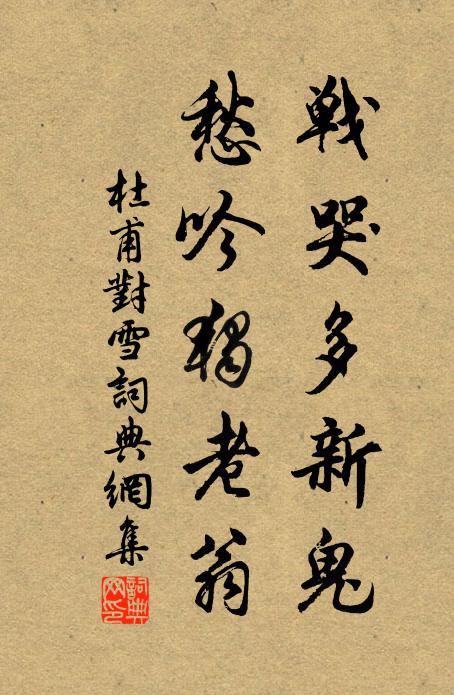 戰哭多新鬼
愁吟獨老翁
杜甫對雪詞典網集
詞典网印